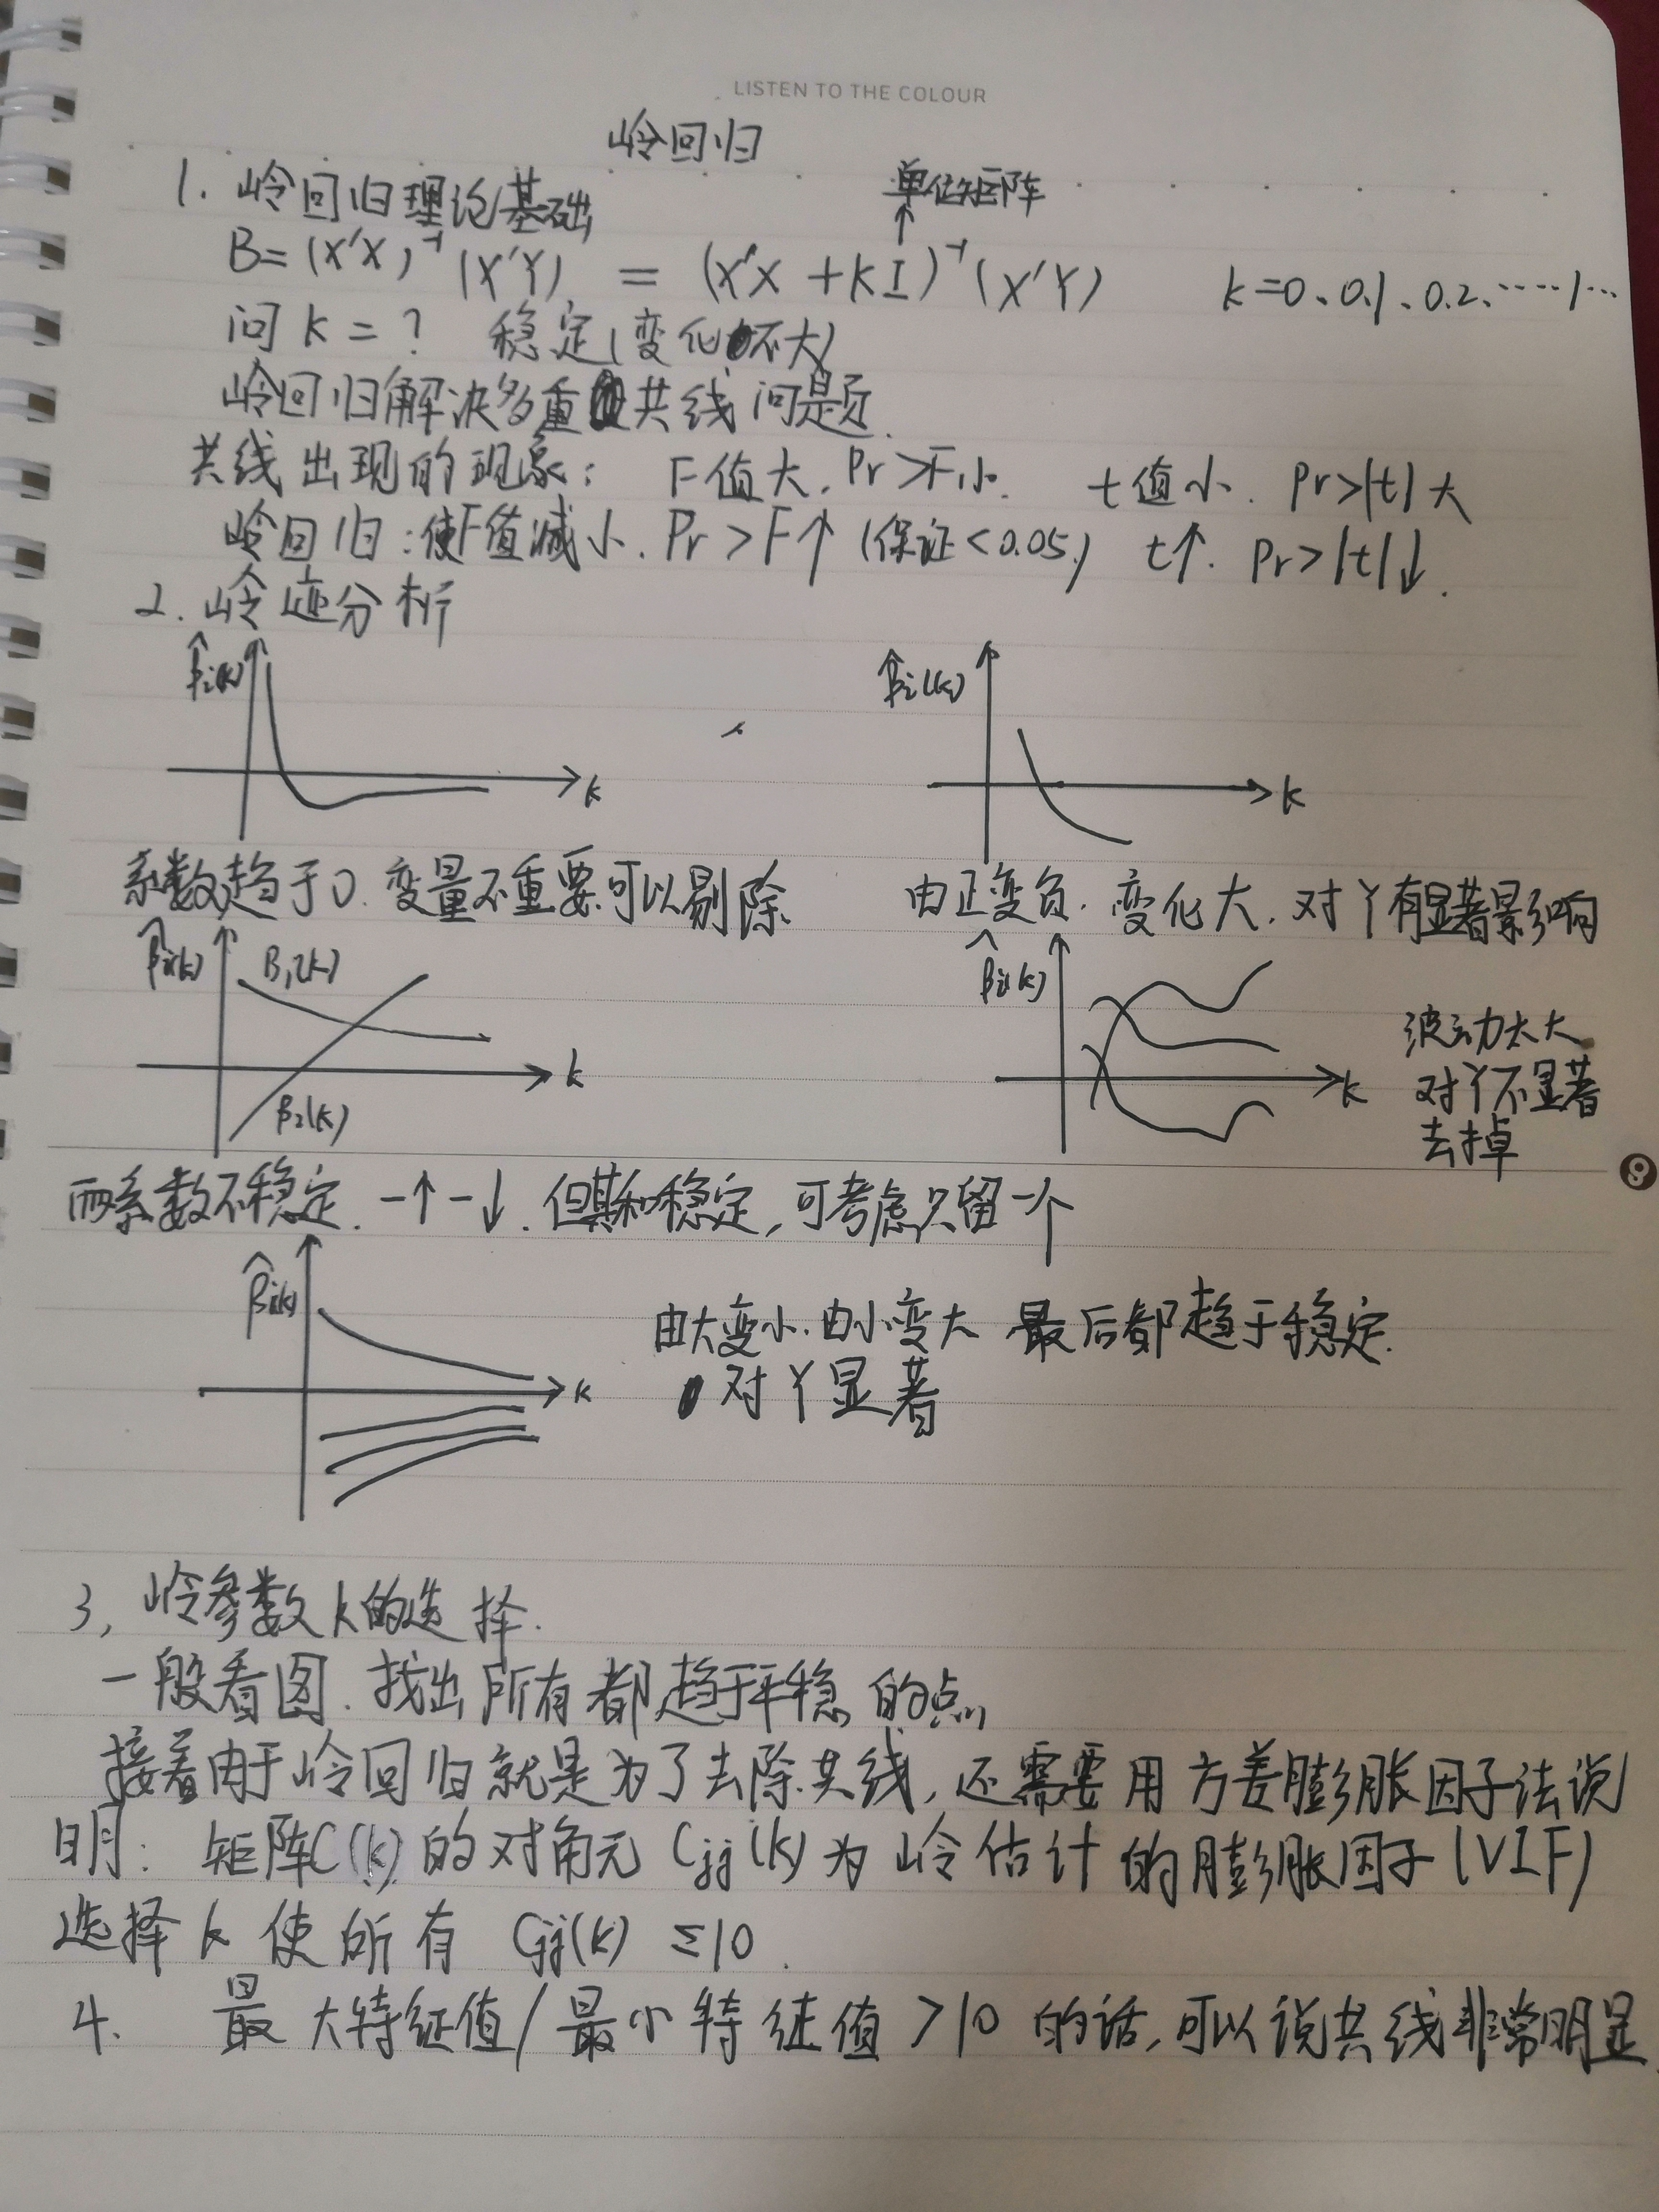 LISTEN TO THE COLOUR
岭回归
单位矩阵
1. 岭回归理论基础
B=(X'X)⁻¹(X'Y) = (X'X+kI)⁻¹(X'Y) k=0、0.1、0.2、……1…
问 k = ? 稳定(变化不大)
岭回归解决多重共线问题.
共线出现的现象: F值大. Pr>F小. t值小. Pr>|t|大
岭回归:使F值减小. Pr>F↑ (保证<0.05) t↑. Pr>|t|↓.
2. 岭迹分析
β̂i(k) k
β̂i(k) k
系数趋于0. 变量不重要.可以剔除
由正变负. 变化大. 对Y有显著影响
β̂i(k) B₁(k) β₂(k) k
β̂i(k) k
波动太大
对Y不显著
去掉
9
两系数不稳定. 一↑一↓. 但其和稳定,可考虑只留一个
β̂i(k) k
由大变小.由小变大 最后都趋于稳定.
对Y显著
3, 岭参数k的选择.
一般看图. 找出所有都趋于平稳的点,
接着由于岭回归就是为了去除共线,还需要用方差膨胀因子法说
明: 矩阵C(k)的对角元 Cjj(k)为岭估计的膨胀因子(VIF)
选择k使所有 Cjj(k) ≤10.
4. 最大特征值/最小特征值>10的话,可以说共线非常明显